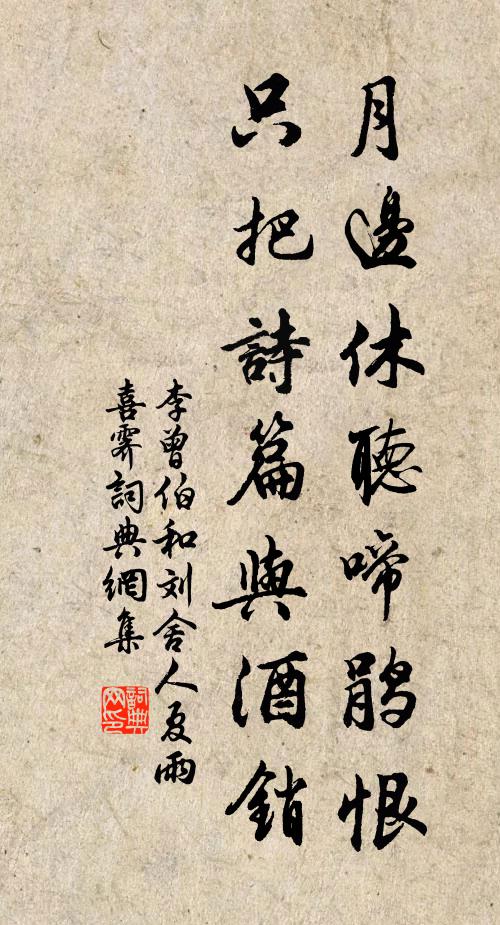 月邊休聽啼鵑恨
只把詩篇與酒銷
李曾伯和刘舍人夏雨
喜霽詞典網集
詞典
网印